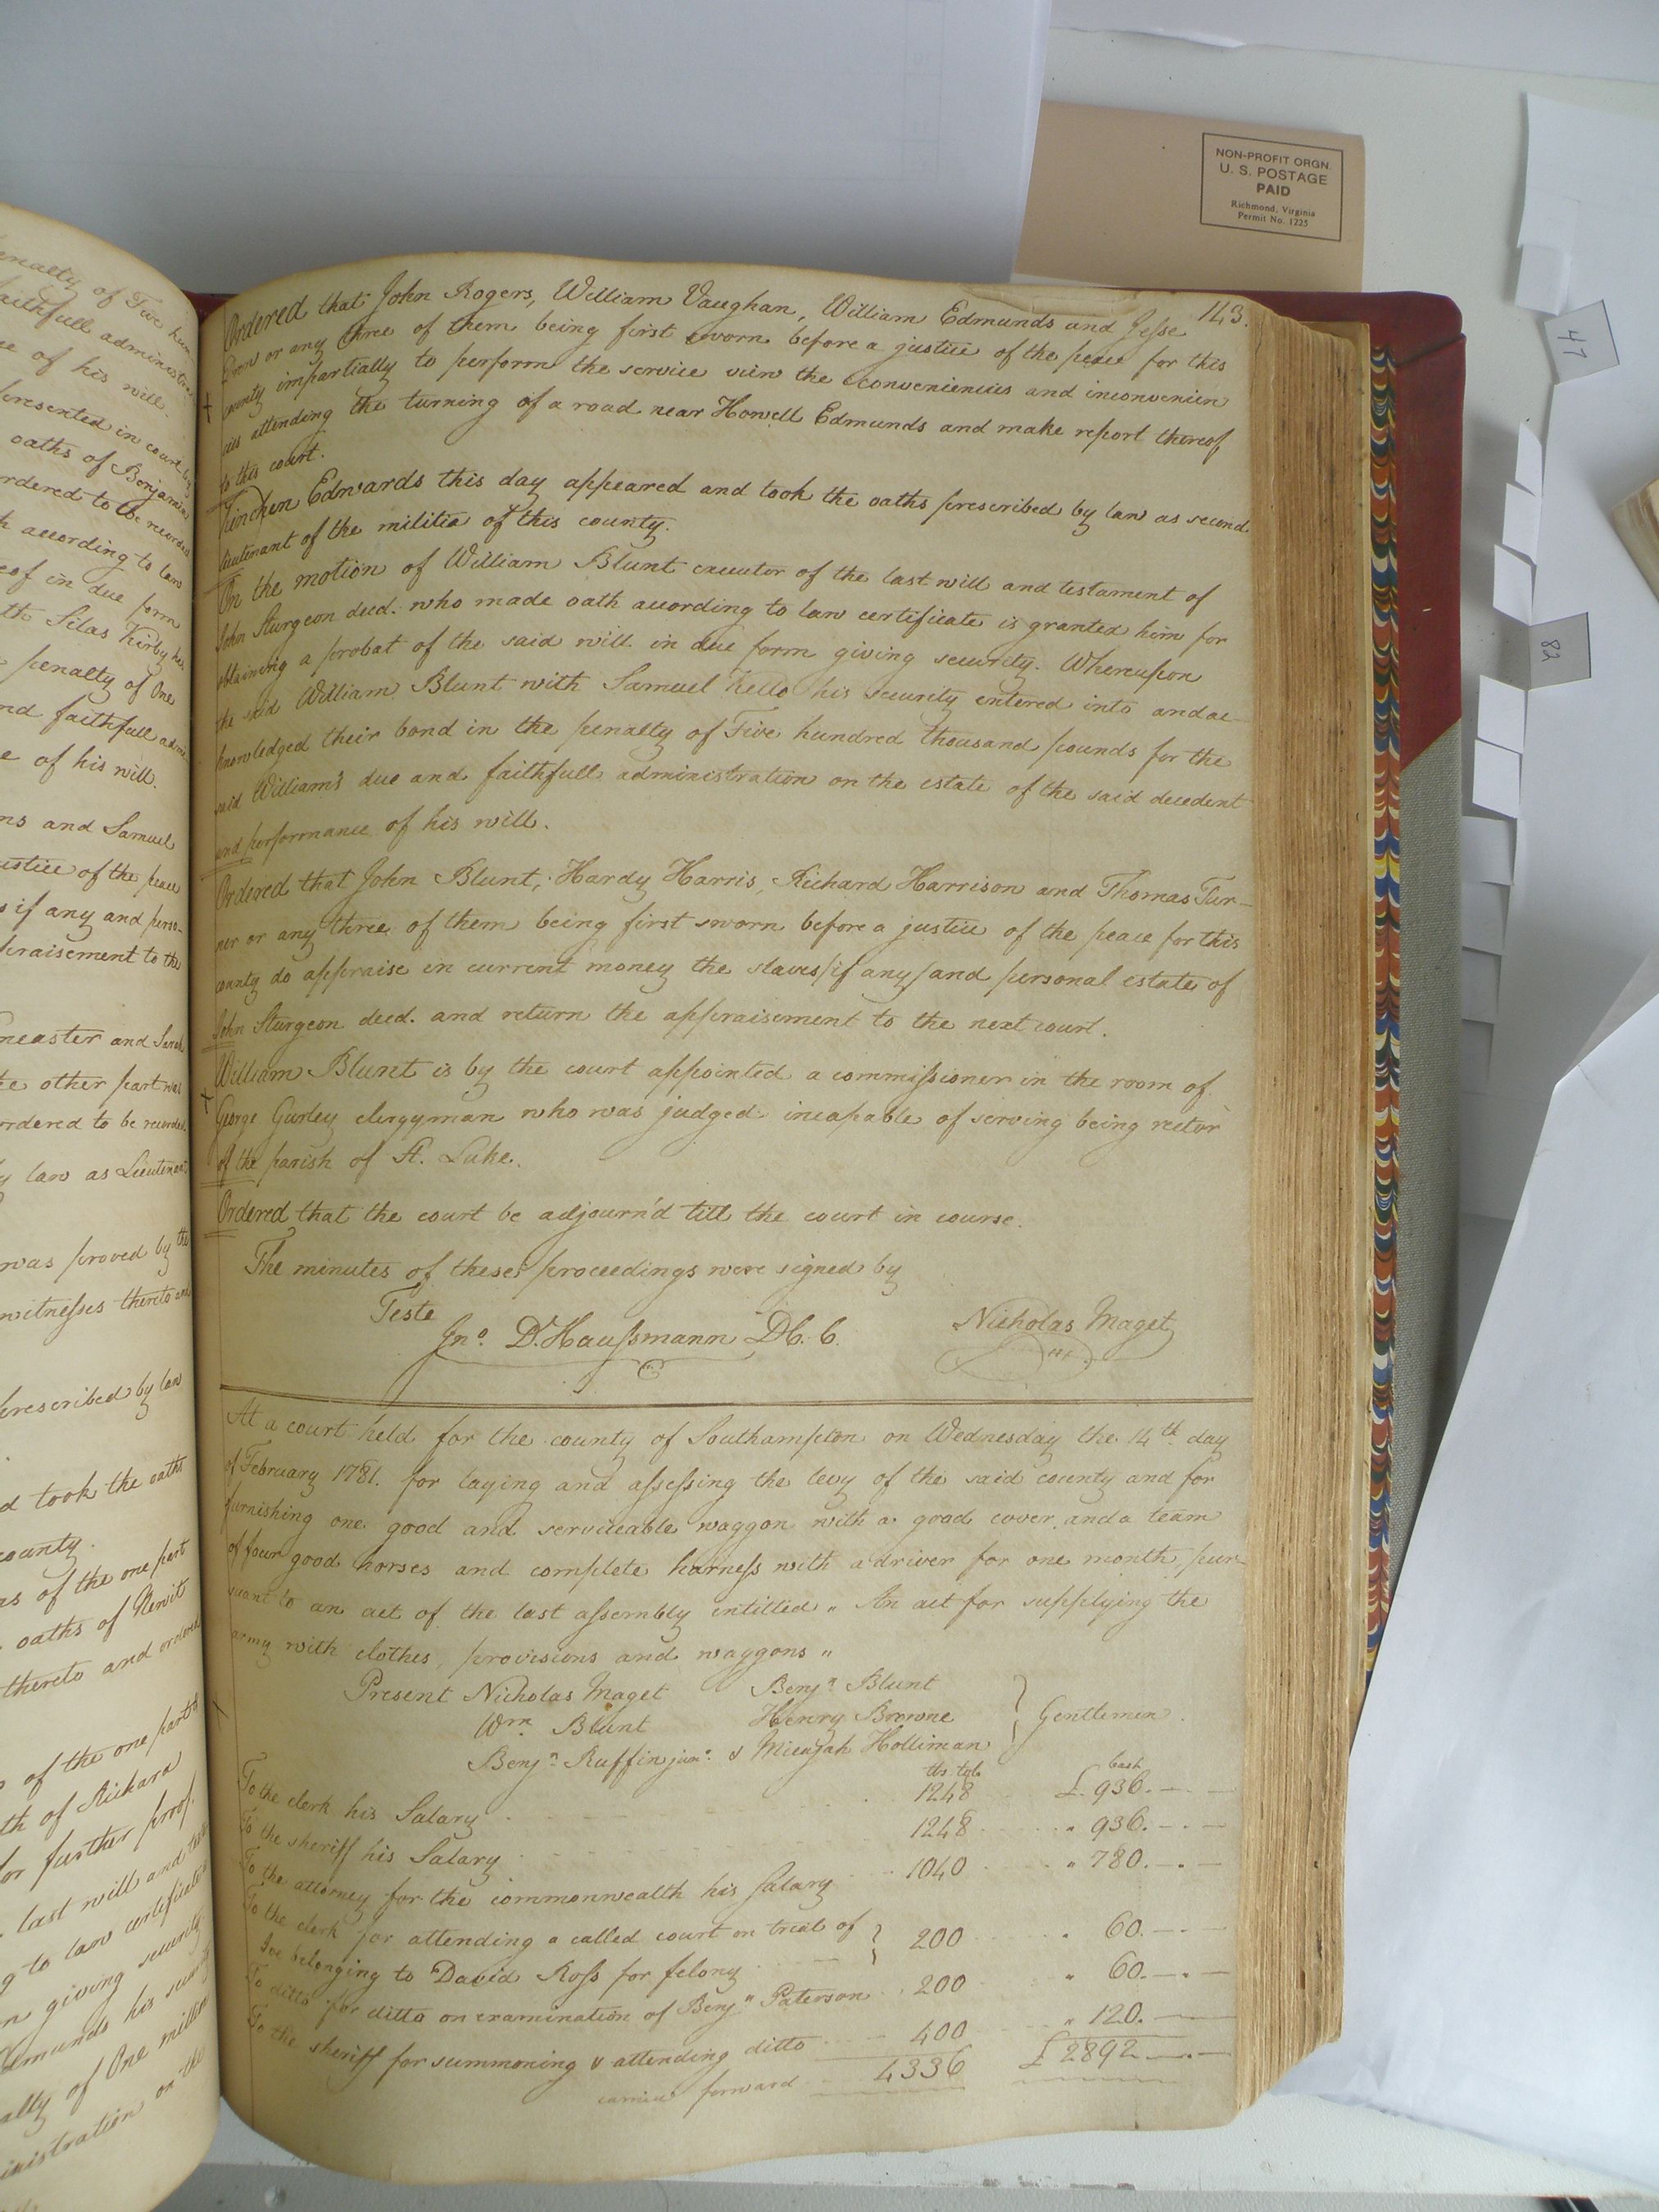 NON-PROFIT ORGN.
U. S. POSTAGE
PAID
Richmond, Virginia
Permit No. 1225
47
82
enalty of Five hun
aithfull administra
ce of his will.
presented in court by
oaths of Benjamin
rdered to be recorded
h according to law
eof in due form
th Silas Kirby his
penalty of One
nd faithfull admi
e of his will.
ns and Samuel
ustice of the peace
if any and perso-
praisement to the
ncaster and Sarah
te other part was
ordered to be recorded.
y law as Lieutenant
was proved by the
witnesses thereto and
prescribed by law
d took the oaths
county.
as of the one part
oaths of Newit
thereto and ordered
s of the one part
th of Richard
for further proof.
last will and
g to law certificate
n giving security
dmunds his security
alty of One million
inistration on the
143.
Ordered that John Rogers, William Vaughan, William Edmunds and Jesse
Dorn or any three of them being first sworn before a justice of the peace for this
county impartially to perform the service view the conveniencies and inconvenien
cies attending the turning of a road near Howell Edmunds and make report thereof
to this court.
Kinchen Edwards this day appeared and took the oaths prescribed by law as second
lieutenant of the militia of this county.
On the motion of William Blunt executor of the last will and testament of
John Sturgeon decd. who made oath according to law certificate is granted him for
obtaining a probat of the said will in due form giving security. Whereupon
the said William Blunt with Samuel Kello his security entered into and ac-
knowledged their bond in the penalty of Five hundred thousand pounds for the
said William's due and faithfull administration on the estate of the said decedent
and performance of his will.
Ordered that John Blunt, Hardy Harris, Richard Harrison and Thomas Tur-
ner or any three of them being first sworn before a justice of the peace for this
county do appraise in current money the slaves/if any/and personal estate of
John Sturgeon decd. and return the appraisement to the next court.
William Blunt is by the court appointed a commissioner in the room of
George Gurley clergyman who was judged incapable of serving being rector
of the parish of St. Luke.
Ordered that the court be adjourn'd till the court in course.
The minutes of theses proceedings were signed by
Teste
Jno. D. Haussmann DC. C.
Nicholas Maget
At a court held for the county of Southampton on Wednesday the 14th day
of February 1781. for laying and assessing the levy of the said county and for
furnishing one good and serviceable waggon with a good cover and a team
of four good horses and complete harness with a driver for one month, pur-
suant to an act of the last assembly entitled " An act for supplying the
army with clothes, provisions and waggons "
Present Nicholas Maget Benjn. Blunt
Wm. Blunt Henry Browne } Gentlemen.
Benjn. Ruffin junr. & Micajah Holliman
lbs. tob. Cash
To the clerk his Salary 1248 £. 936. — . —
To the sheriff his Salary 1248 " 936. — . —
To the attorney for the commonwealth his Salary 1040 " 780. — . —
To the clerk for attending a called court on trial of
Joe belonging to David Ross for felony } 200 " 60. — . —
To ditto for ditto on examination of Benjn. Paterson 200 " 60. — . —
To the sheriff for summoning & attending ditto 400 " 120. —
carried forward 4336 £ 2892 — . —